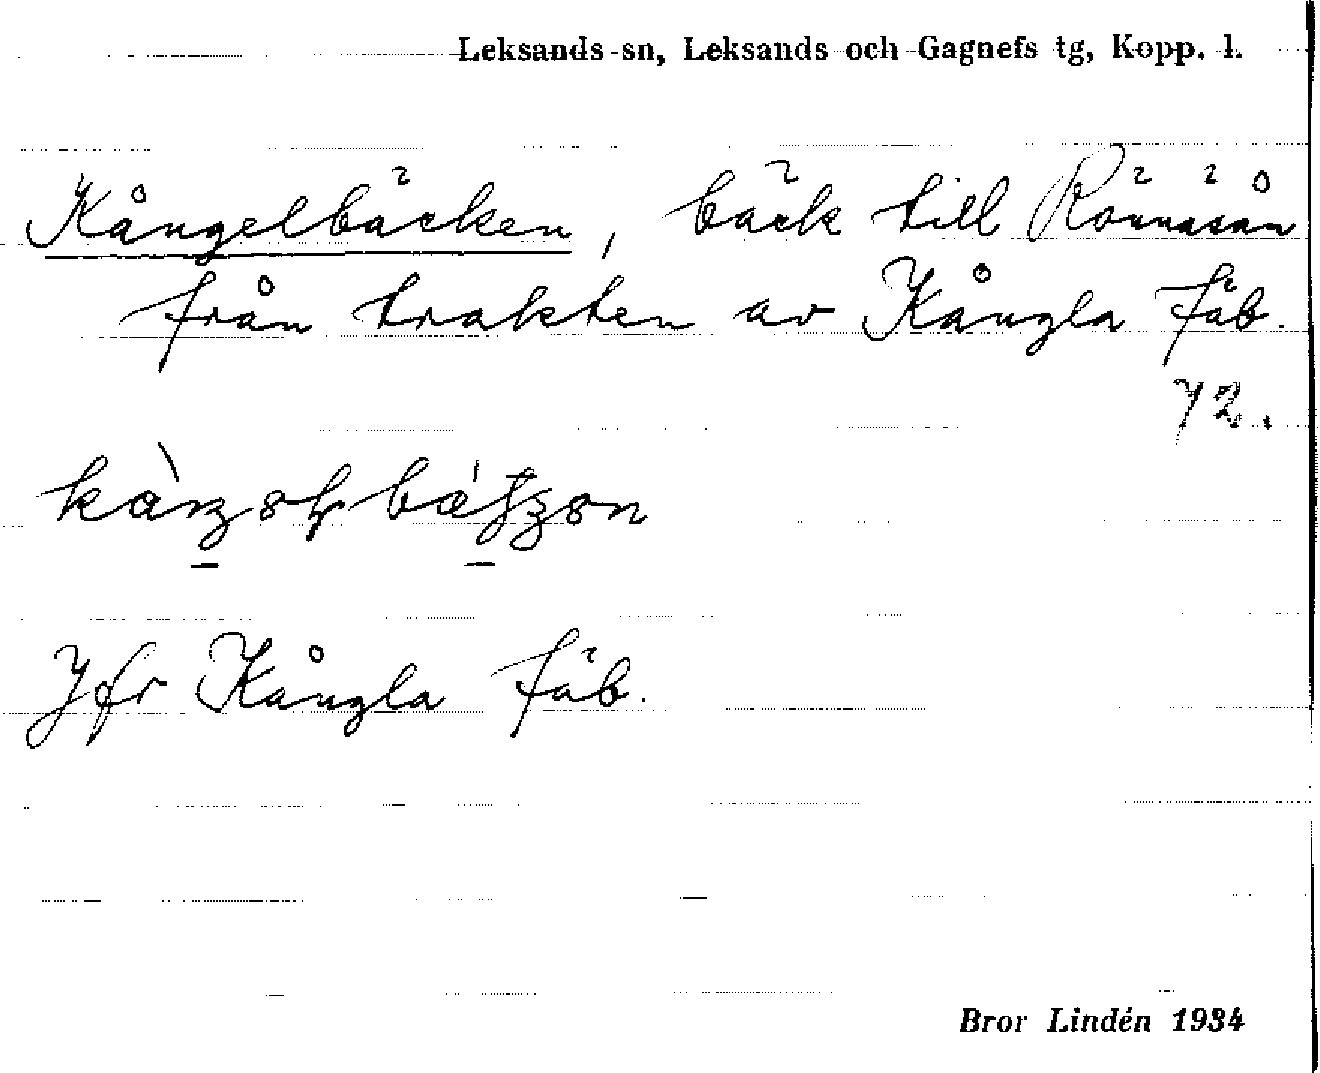 Leksands sn, Leksands och Gagnefs tg, Kopp. l.
Kångelbäcken, bäck till Rönnåsån
från trakten av Kångla fäb.
72.
Jfr Kångla fäb.
Bror Lindén 1934